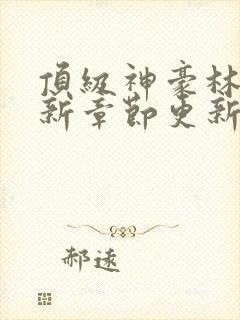 頂級神豪林
新章節更新
郝遠